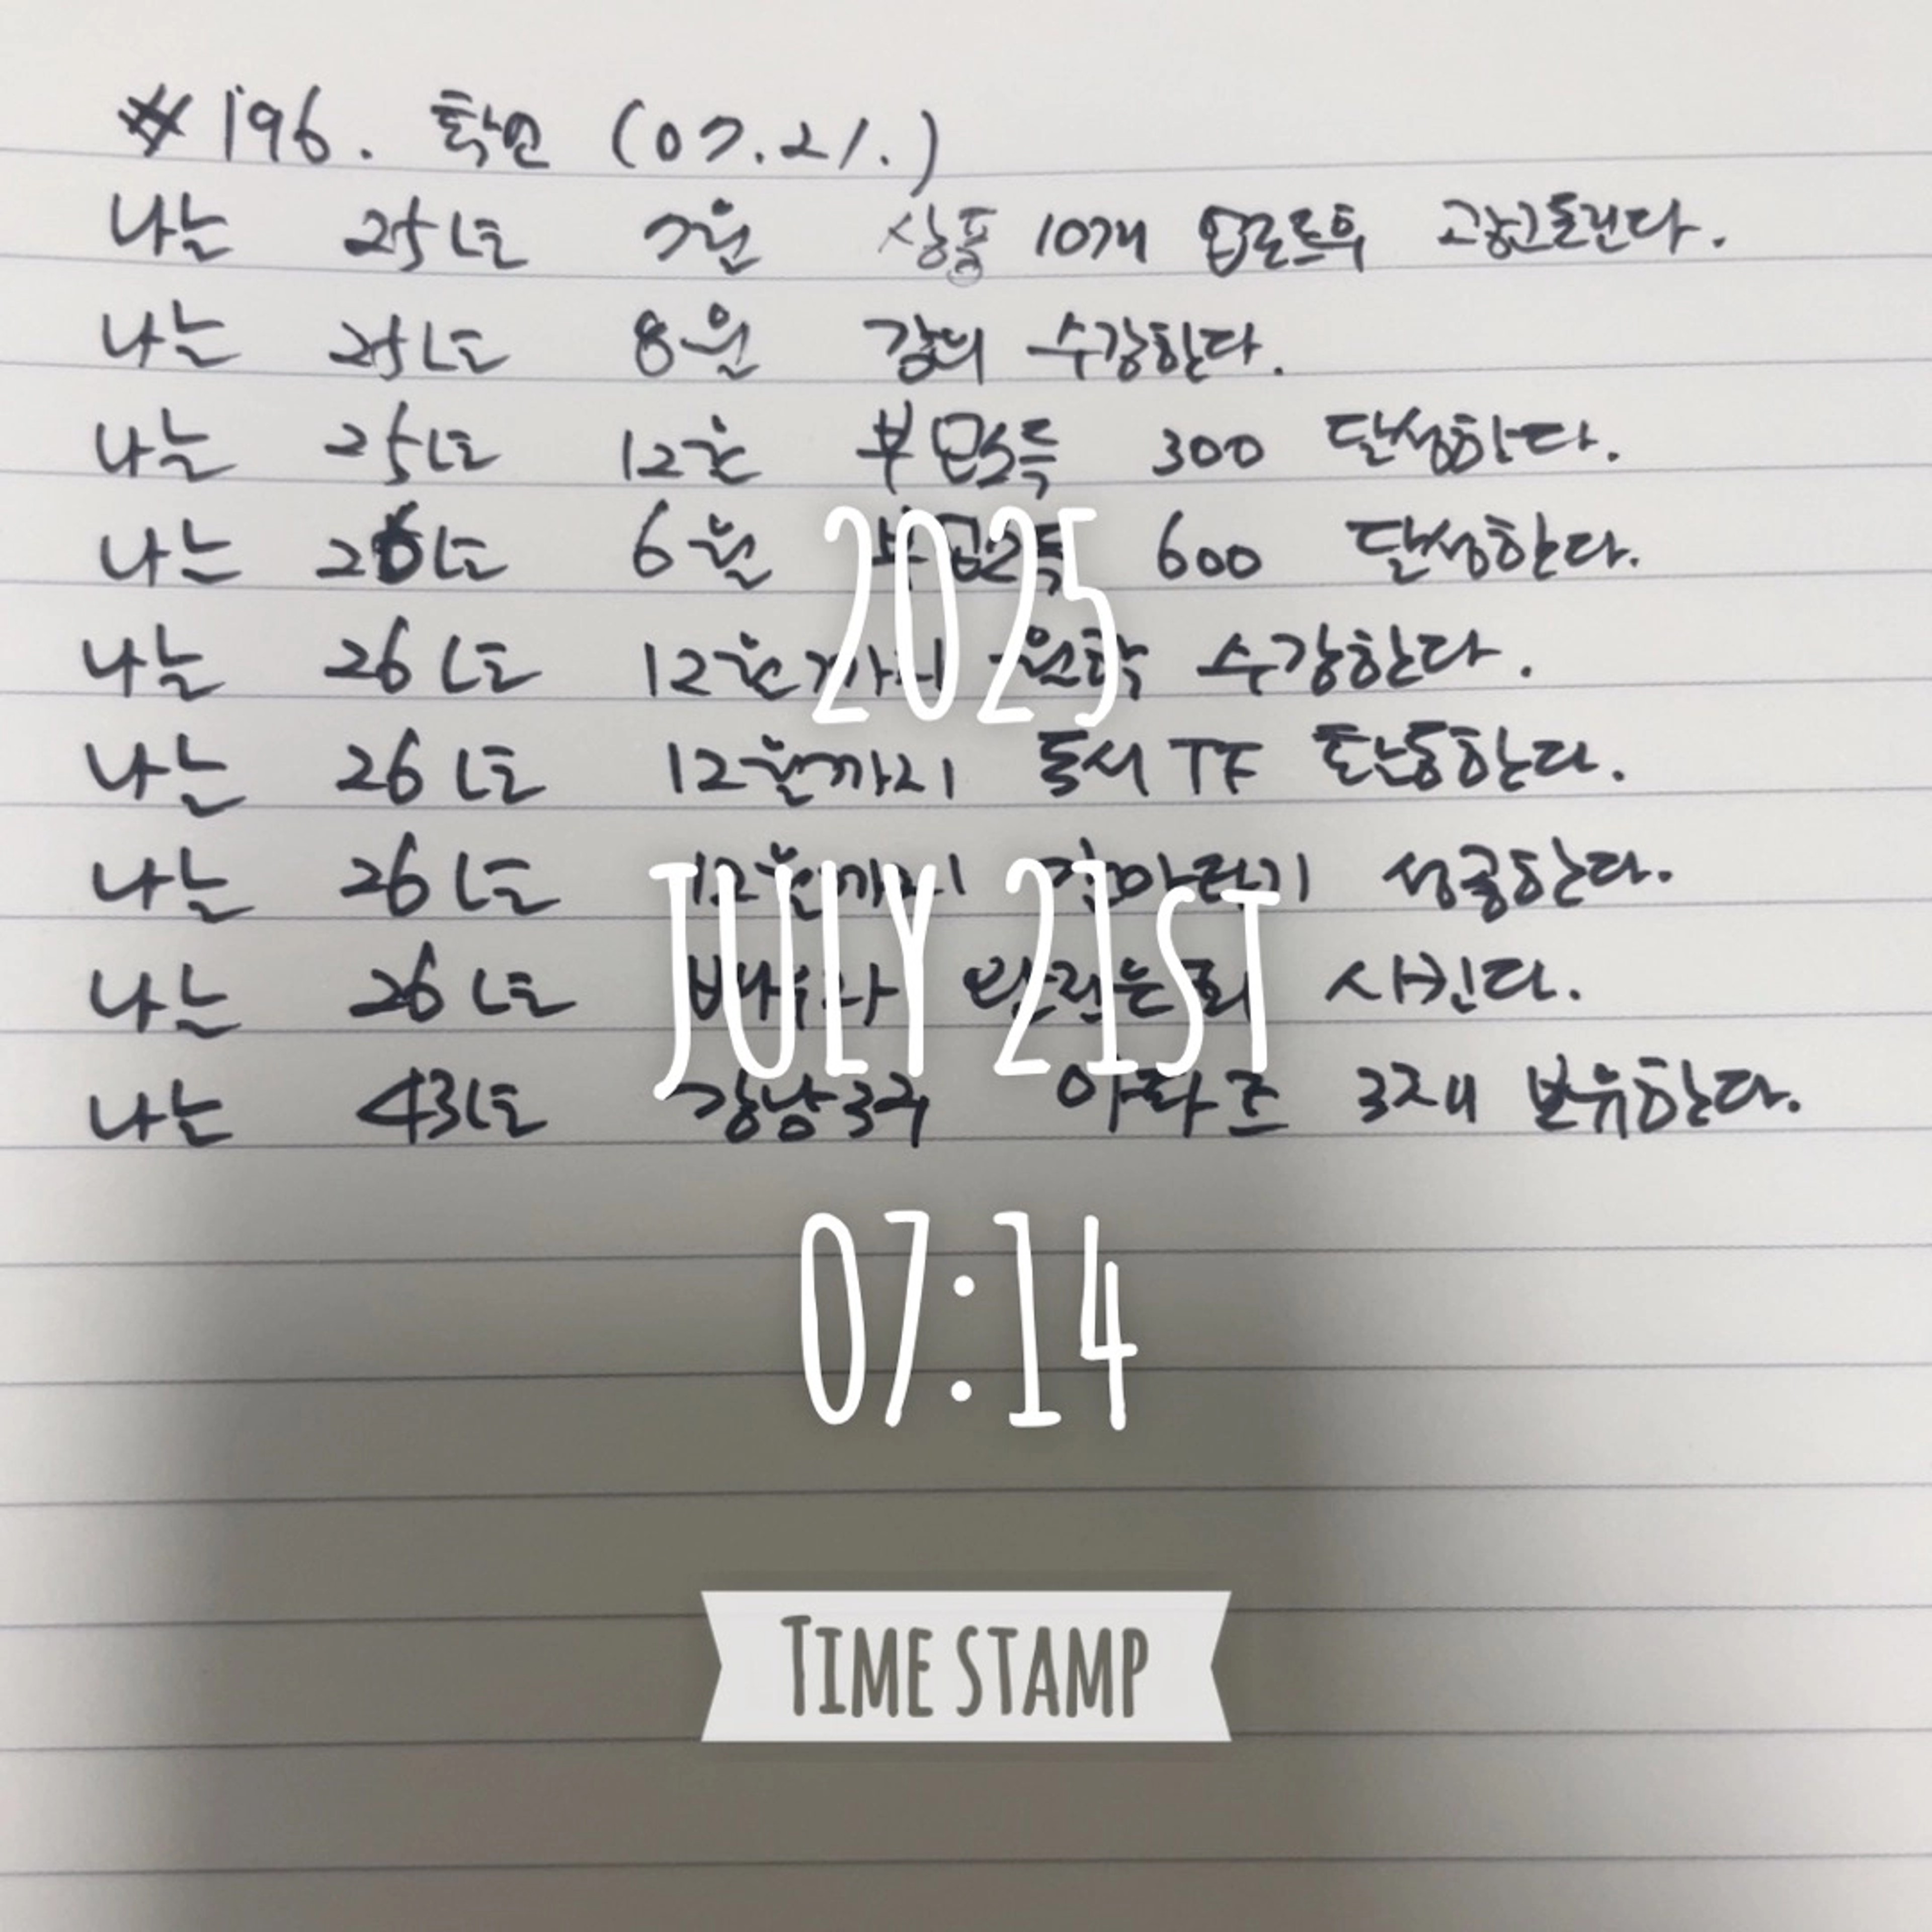 #196. 확언 (07.21.)
나는 25년 7월 상품 10개 업로드후 광고돌린다.
나는 25년 8월 강의 수강한다.
나는 25년 12월 부업소득 300 달성한다.
나는 26년 6월 부업소득 600 달성한다.
나는 26년 12월까지 월학 수강한다.
나는 26년 12월까지 독서 TF 활동한다.
나는 26년 12월까지 성공한다.
나는 26년 시킨다.
나는 43년 강남3구 아파트 3채 보유한다.
2025
JULY 21ST
07:14
TIME STAMP